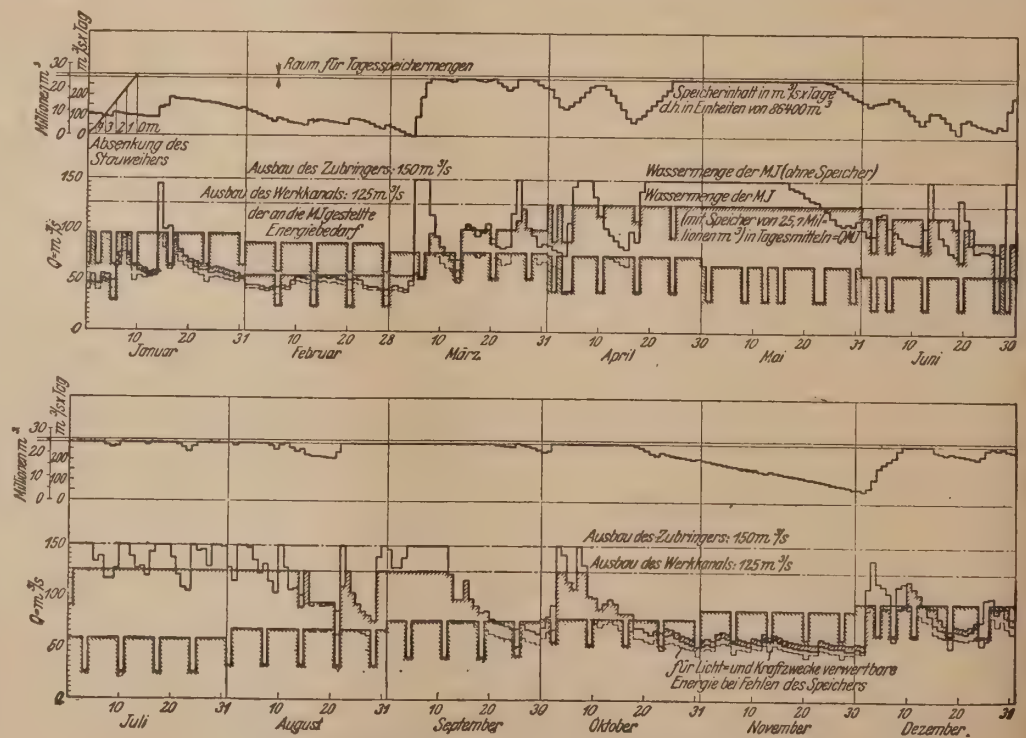 Millionen m³
m³/s x Tag
30
20
10
0
200
100
0
Raum für Tagesspeichermengen
Speicherinhalt in m³/s x Tage
d.h. in Einheiten von 86400 m³
4 3 2 1 0 m
Absenkung des
Stauweihers
Q = m³/s
150
100
50
0
Ausbau des Zubringers: 150 m³/s
Ausbau des Werkkanals: 125 m³/s
der an die MJ gestellte
Energiebedarf
Wassermenge der MJ (ohne Speicher)
Wassermenge der MJ
(mit Speicher von 25,7 Mil-
lionen m³) in Tagesmitteln = QMJ
10 20 31 10 20 28 10 20 31 10 20 30 10 20 31 10 20 30
Januar Februar März April Mai Juni
Millionen m³
m³/s x Tag
30
20
10
0
200
100
0
Q = m³/s
150
100
50
0
Ausbau des Zubringers: 150 m³/s
Ausbau des Werkkanals: 125 m³/s
für Licht- und Kraftzwecke verwertbare
Energie bei Fehlen des Speichers
10 20 31 10 20 31 10 20 30 10 20 31 10 20 30 10 20 31
Juli August September Oktober November Dezember